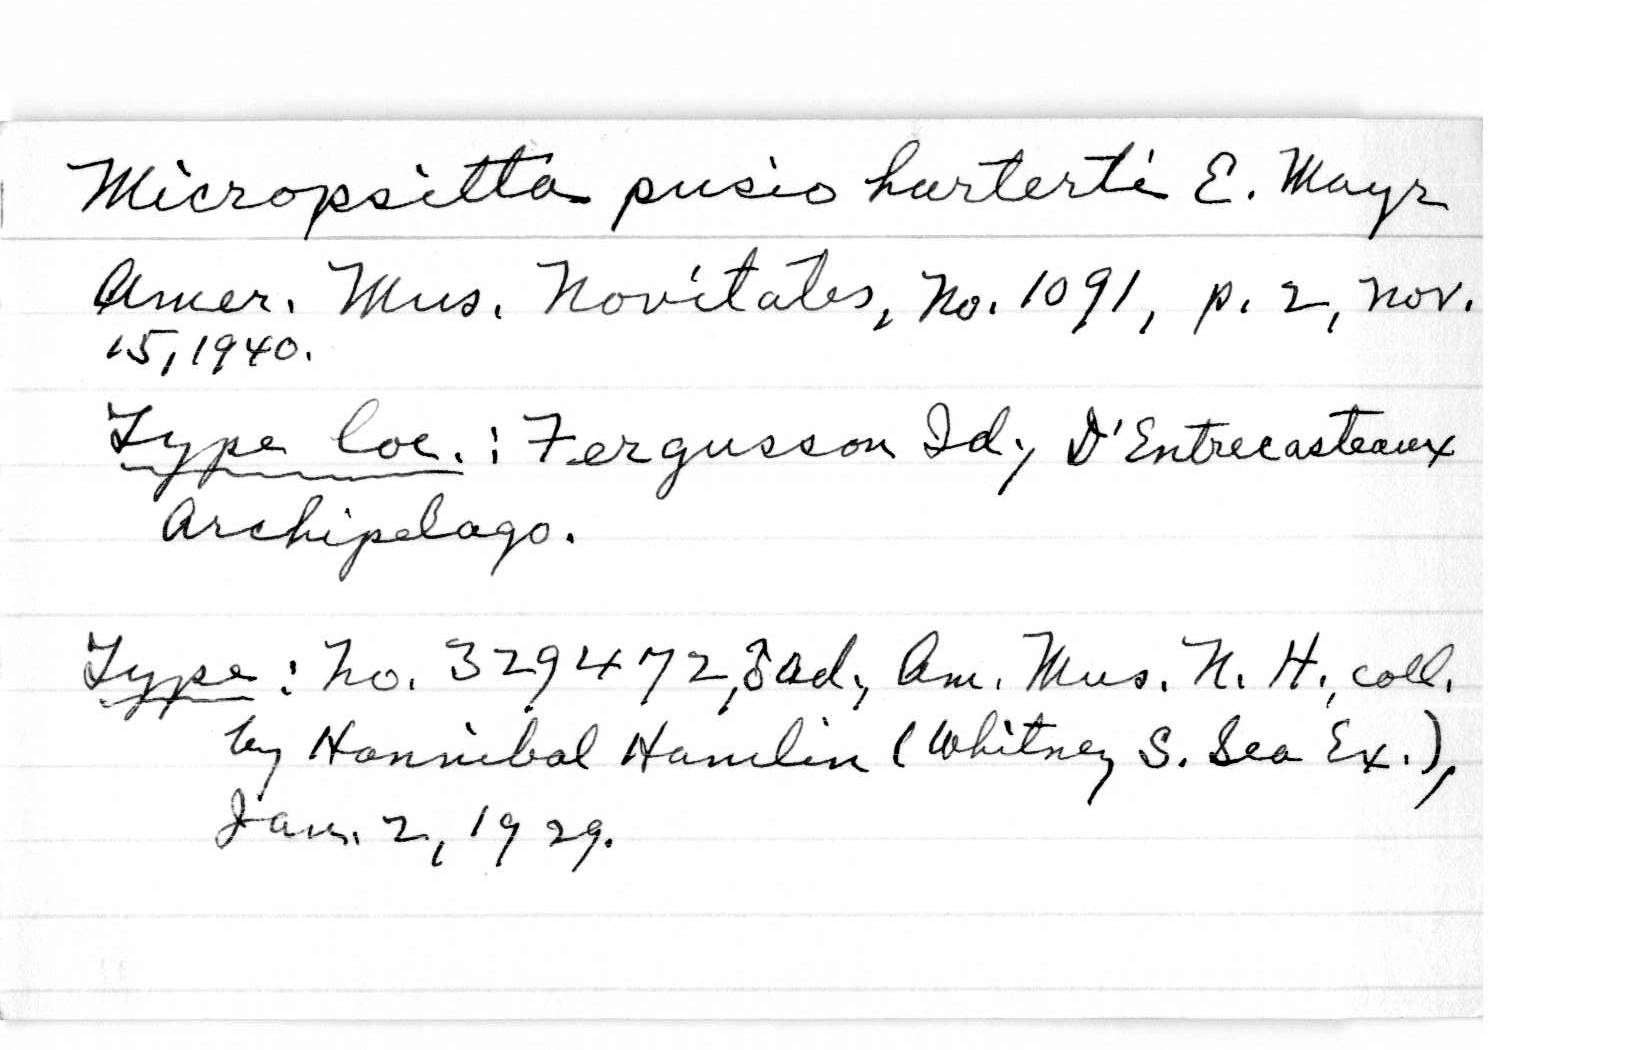 Micropsitta pusio harterti E. Mayr
Amer. Mus. Novitates, No. 1091, p. 2, Nov.
15, 1940.
Type loc.: Fergusson Id., D'Entrecasteaux
Archipelago.
Type: No. 329472, ♂ ad., Am. Mus. N. H., coll.
by Hannibal Hamlin (Whitney S. Sea Ex.),
Jan. 2, 1929.